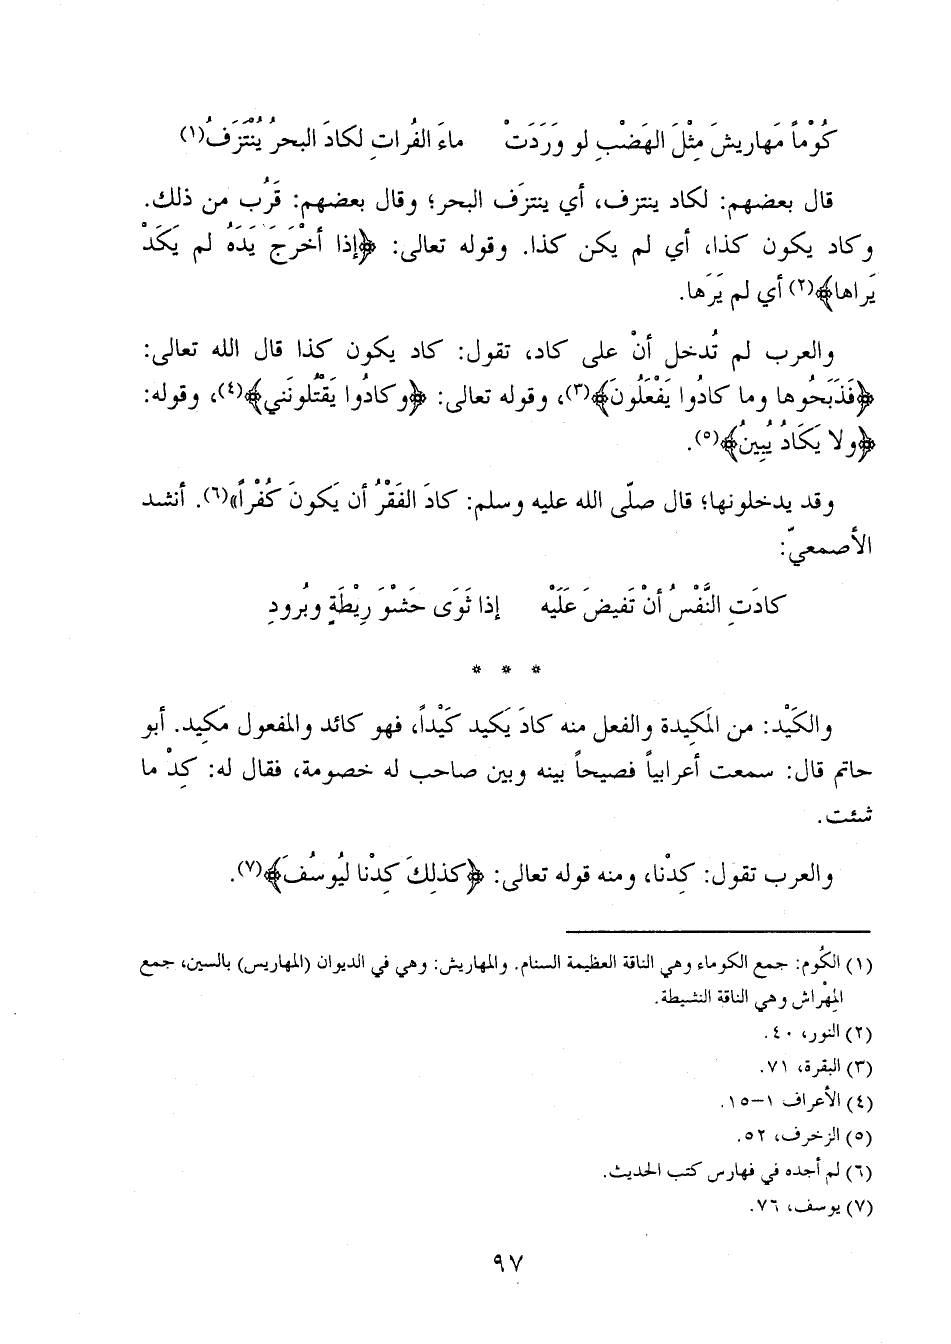 كُوْماً مَهاريشَ مِثْلَ الهَضْبِ لو وَرَدَتْ    ماءَ الفُراتِ لكادَ البحرُ يُنْتَزَفُ(١)
قال بعضهم: لكاد ينتزف، أي ينتزَف البحر؛ وقال بعضهم: قَرُب من ذلك.
وكاد يكون كذا، أي لم يكن كذا. وقوله تعالى: ﴿إذا أخْرَجَ يَدَهُ لم يَكَدْ
يَراها﴾(٢) أي لم يَرَها.
والعرب لم تُدخل أنْ على كاد، تقول: كاد يكون كذا قال الله تعالى:
﴿فَذَبَحُوها وما كادُوا يَفْعَلُونَ﴾(٣)، وقوله تعالى: ﴿وكادُوا يَقْتُلونَني﴾(٤)، وقوله:
﴿ولا يَكَادُ يُبِينُ﴾(٥).
وقد يدخلونها؛ قال صلّى الله عليه وسلم: كادَ الفَقْرُ أن يَكونَ كُفْراً»(٦). أنشد
الأصمعيّ:
كادَتِ النَّفْسُ أنْ تَفيضَ عَلَيْه    إذا ثَوَى حَشْوَ رِيْطَةٍ وبُرودِ
* * *
والكَيْد: من المَكِيدة والفعل منه كادَ يَكيد كَيْداً، فهو كائد والمفعول مَكِيد. أبو
حاتم قال: سمعت أعرابياً فصيحاً بينه وبين صاحب له خصومة، فقال له: كِدْ ما
شئت.
والعرب تقول: كِدْنا، ومنه قوله تعالى: ﴿كذلِكَ كِدْنا لِيُوسُفَ﴾(٧).
(١) الكُوم: جمع الكوماء وهي الناقة العظيمة السنام. والمهاريش: وهي في الديوان (المهاريس) بالسين، جمع
المِهْراش وهي الناقة النشيطة.
(٢) النور، ٤٠.
(٣) البقرة، ٧١.
(٤) الأعراف ١–١٥.
(٥) الزخرف، ٥٢.
(٦) لم أجده في فهارس كتب الحديث.
(٧) يوسف، ٧٦.
٩٧